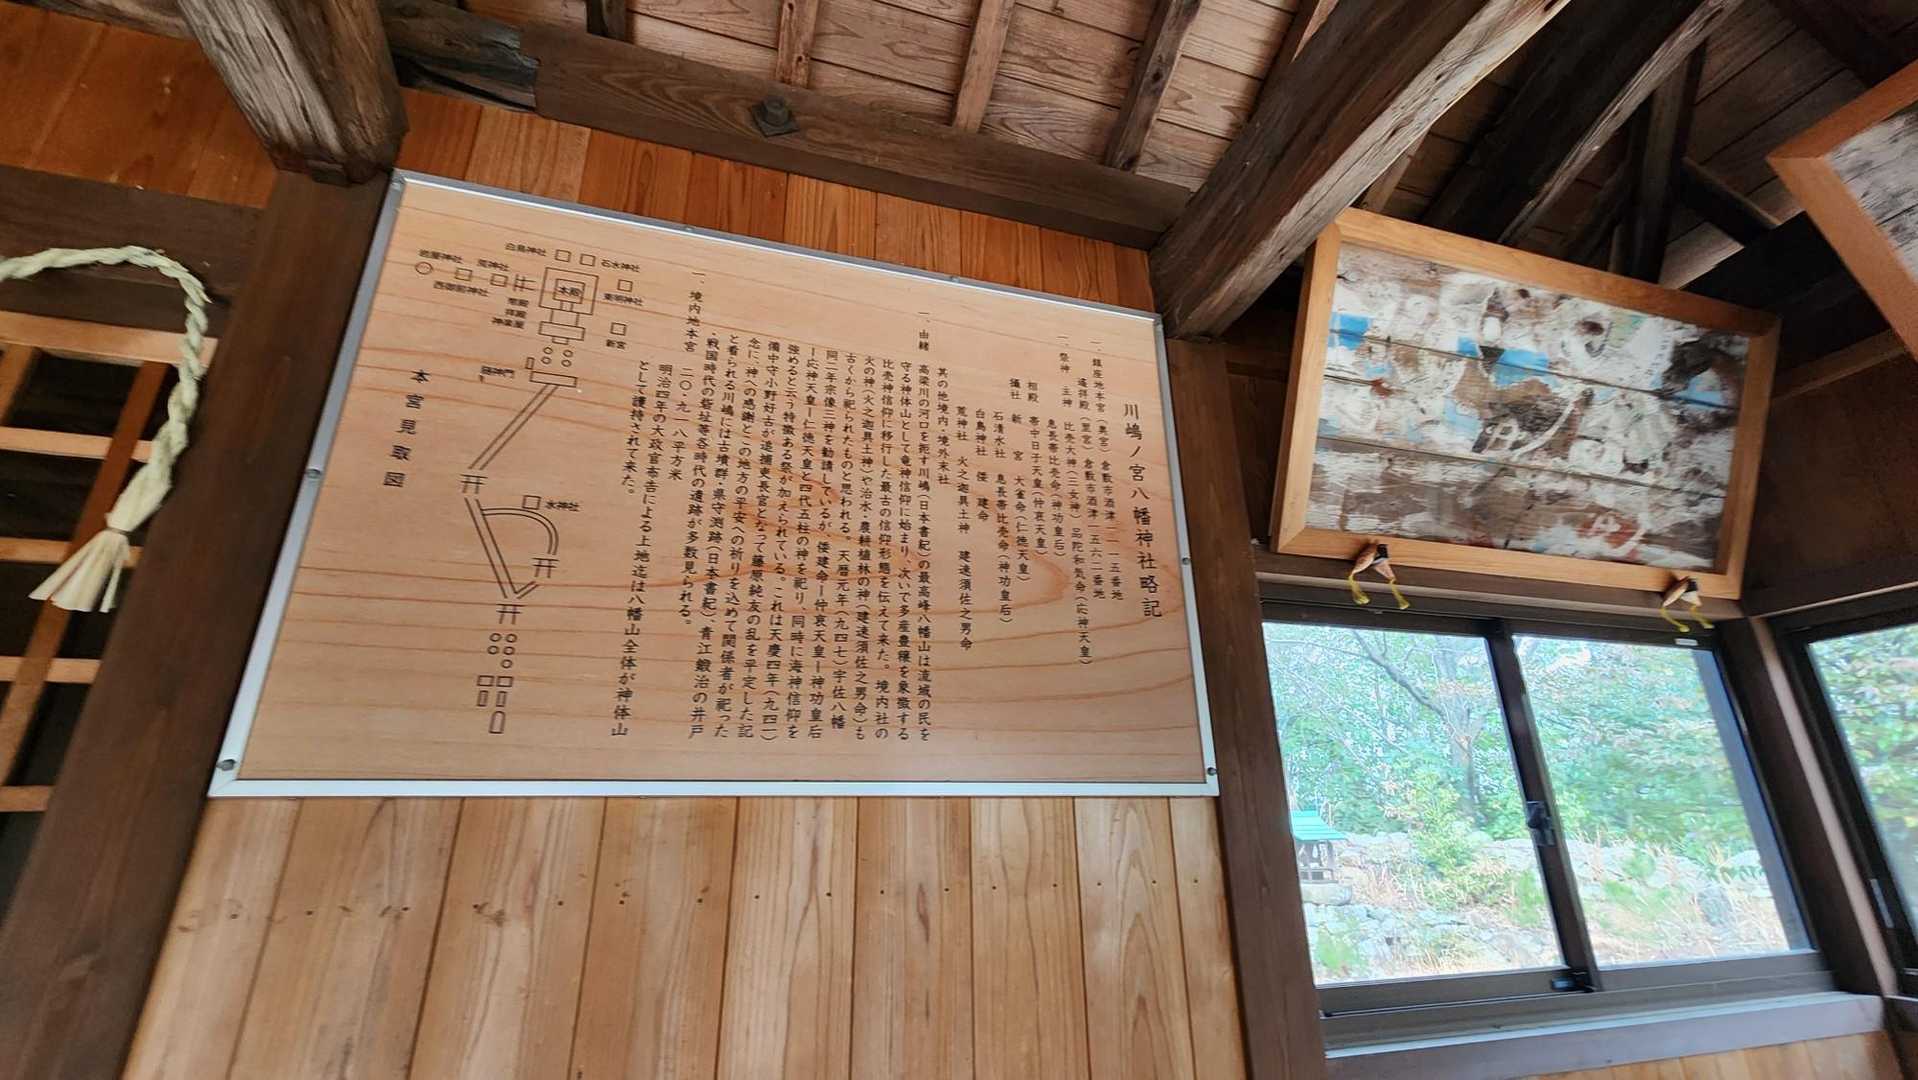 川嶋ノ宮八幡神社略記
一、鎮座地本宮（奥宮）倉敷市酒津二一一五番地
遙拝殿（里宮）倉敷市酒津一五六二番地
一、祭神　主神　比売大神（三女神）、品陀和気命（応神天皇）
息長帯比売命（神功皇后）
相殿　帯中日子天皇（仲哀天皇）
摂社　新　宮　大雀命（仁徳天皇）
石清水社　息長帯比売命（神功皇后）
白鳥神社　倭　建命
荒神社　火之迦具土神　建速須佐之男命
其の他境内・境外末社
一、由緒　高梁川の河口を扼す川嶋（日本書紀）の最高峰八幡山は流域の民を
守る神体山として竜神信仰に始まり、次いで多産豊穣を象徴する
比売神信仰に移行した最古の信仰形態を伝えて来た。境内社の
火の神（火之迦具土神）や治水・農耕植林の神（建速須佐之男命）も
古くから祀られたものと思われる。天暦元年（九四七）宇佐八幡
同二年宗像三神を勧請しているが、倭建命ー仲哀天皇ー神功皇后
ー応神天皇ー仁徳天皇と四代五柱の神を祀り、同時に海神信仰を
強めると云う特徴ある祭が加えられている。これは天慶四年（九四一）
備中守小野好古が追捕吏長官となって藤原純友の乱を平定した記
念に、神への感謝とこの地方の平安への祈りを込めて関係者が祀った
と看られる川嶋には古墳群・県守渕跡（日本書紀）、青江鍛冶の井戸
・戦国時代の砦址等各時代の遺跡が多数見られる。
一、境内地本宮　二〇・九一八平方米
明治四年の大政官布告による上地迄は八幡山全体が神体山
として護持されて来た。
白鳥神社
石水神社
岩屋神社
荒神社
西御前神社
本殿
東明神社
幣殿
拝殿
神楽殿
新宮
随神門
水神社
本宮見取図